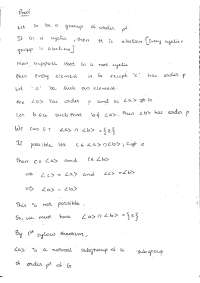 Proof:
Let G be a group of order p²
If G is cyclic, then it is abelian [Every cyclic
group is abelian]
Now suppose that G is not cyclic
Then every element in G except 'e' has order p
Let 'a' be such an element
The <a> has order p and so <a> ≠ G
Let b∈G such that b∉<a>, then <b> has order p
We can S.T <a>∩<b> = {e}
If possible let c∈<a>∩<b>, c≠e
Then c∈<a> and c∈<b>
⇒ <c> = <a> and <c> = <b>
⇒ <a> = <b>
This is not possible.
So, we must have <a>∩<b> = {e}
By 1st sylow theorem,
<a> is a normal subgroup of a subgroup
of order p² of G